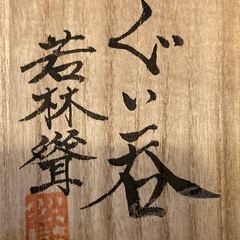 ぐい呑
若林